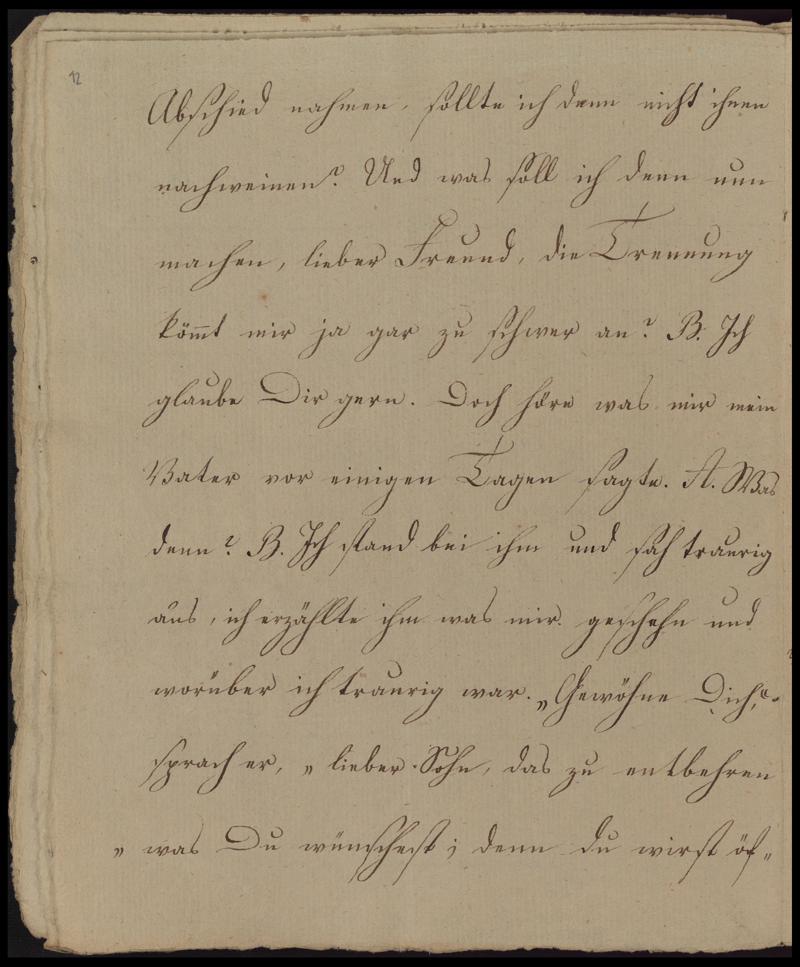 12
Abschied nahmen, sollte ich denn nicht ihnen
nachweinen? Und was soll ich denn nun
machen, lieber Freund, die Trennung
köm̄t mir ja gar zu schwer an? B. Ich
glaube Dir gern. Doch höre was mir mein
Vater vor einigen Tagen sagte. A. Was
denn? B. Ich stand bei ihm und sah traurig
aus, ich erzählte ihm was mir geschehn und
worüber ich traurig war. „Gewöhne Dich,“
sprach er, „lieber Sohn, das zu entbehren
„ was Du wünschest; denn du wirst öf„